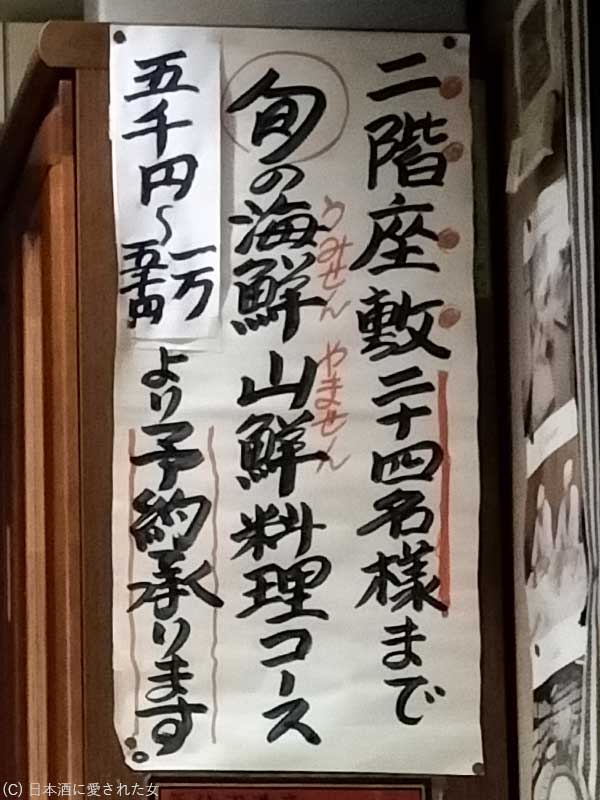 二階座敷二十四名様まで
旬の海鮮山鮮料理コース
うみせん やません
五千円～一万五千円
より予約承ります。
(C) 日本酒に愛された女